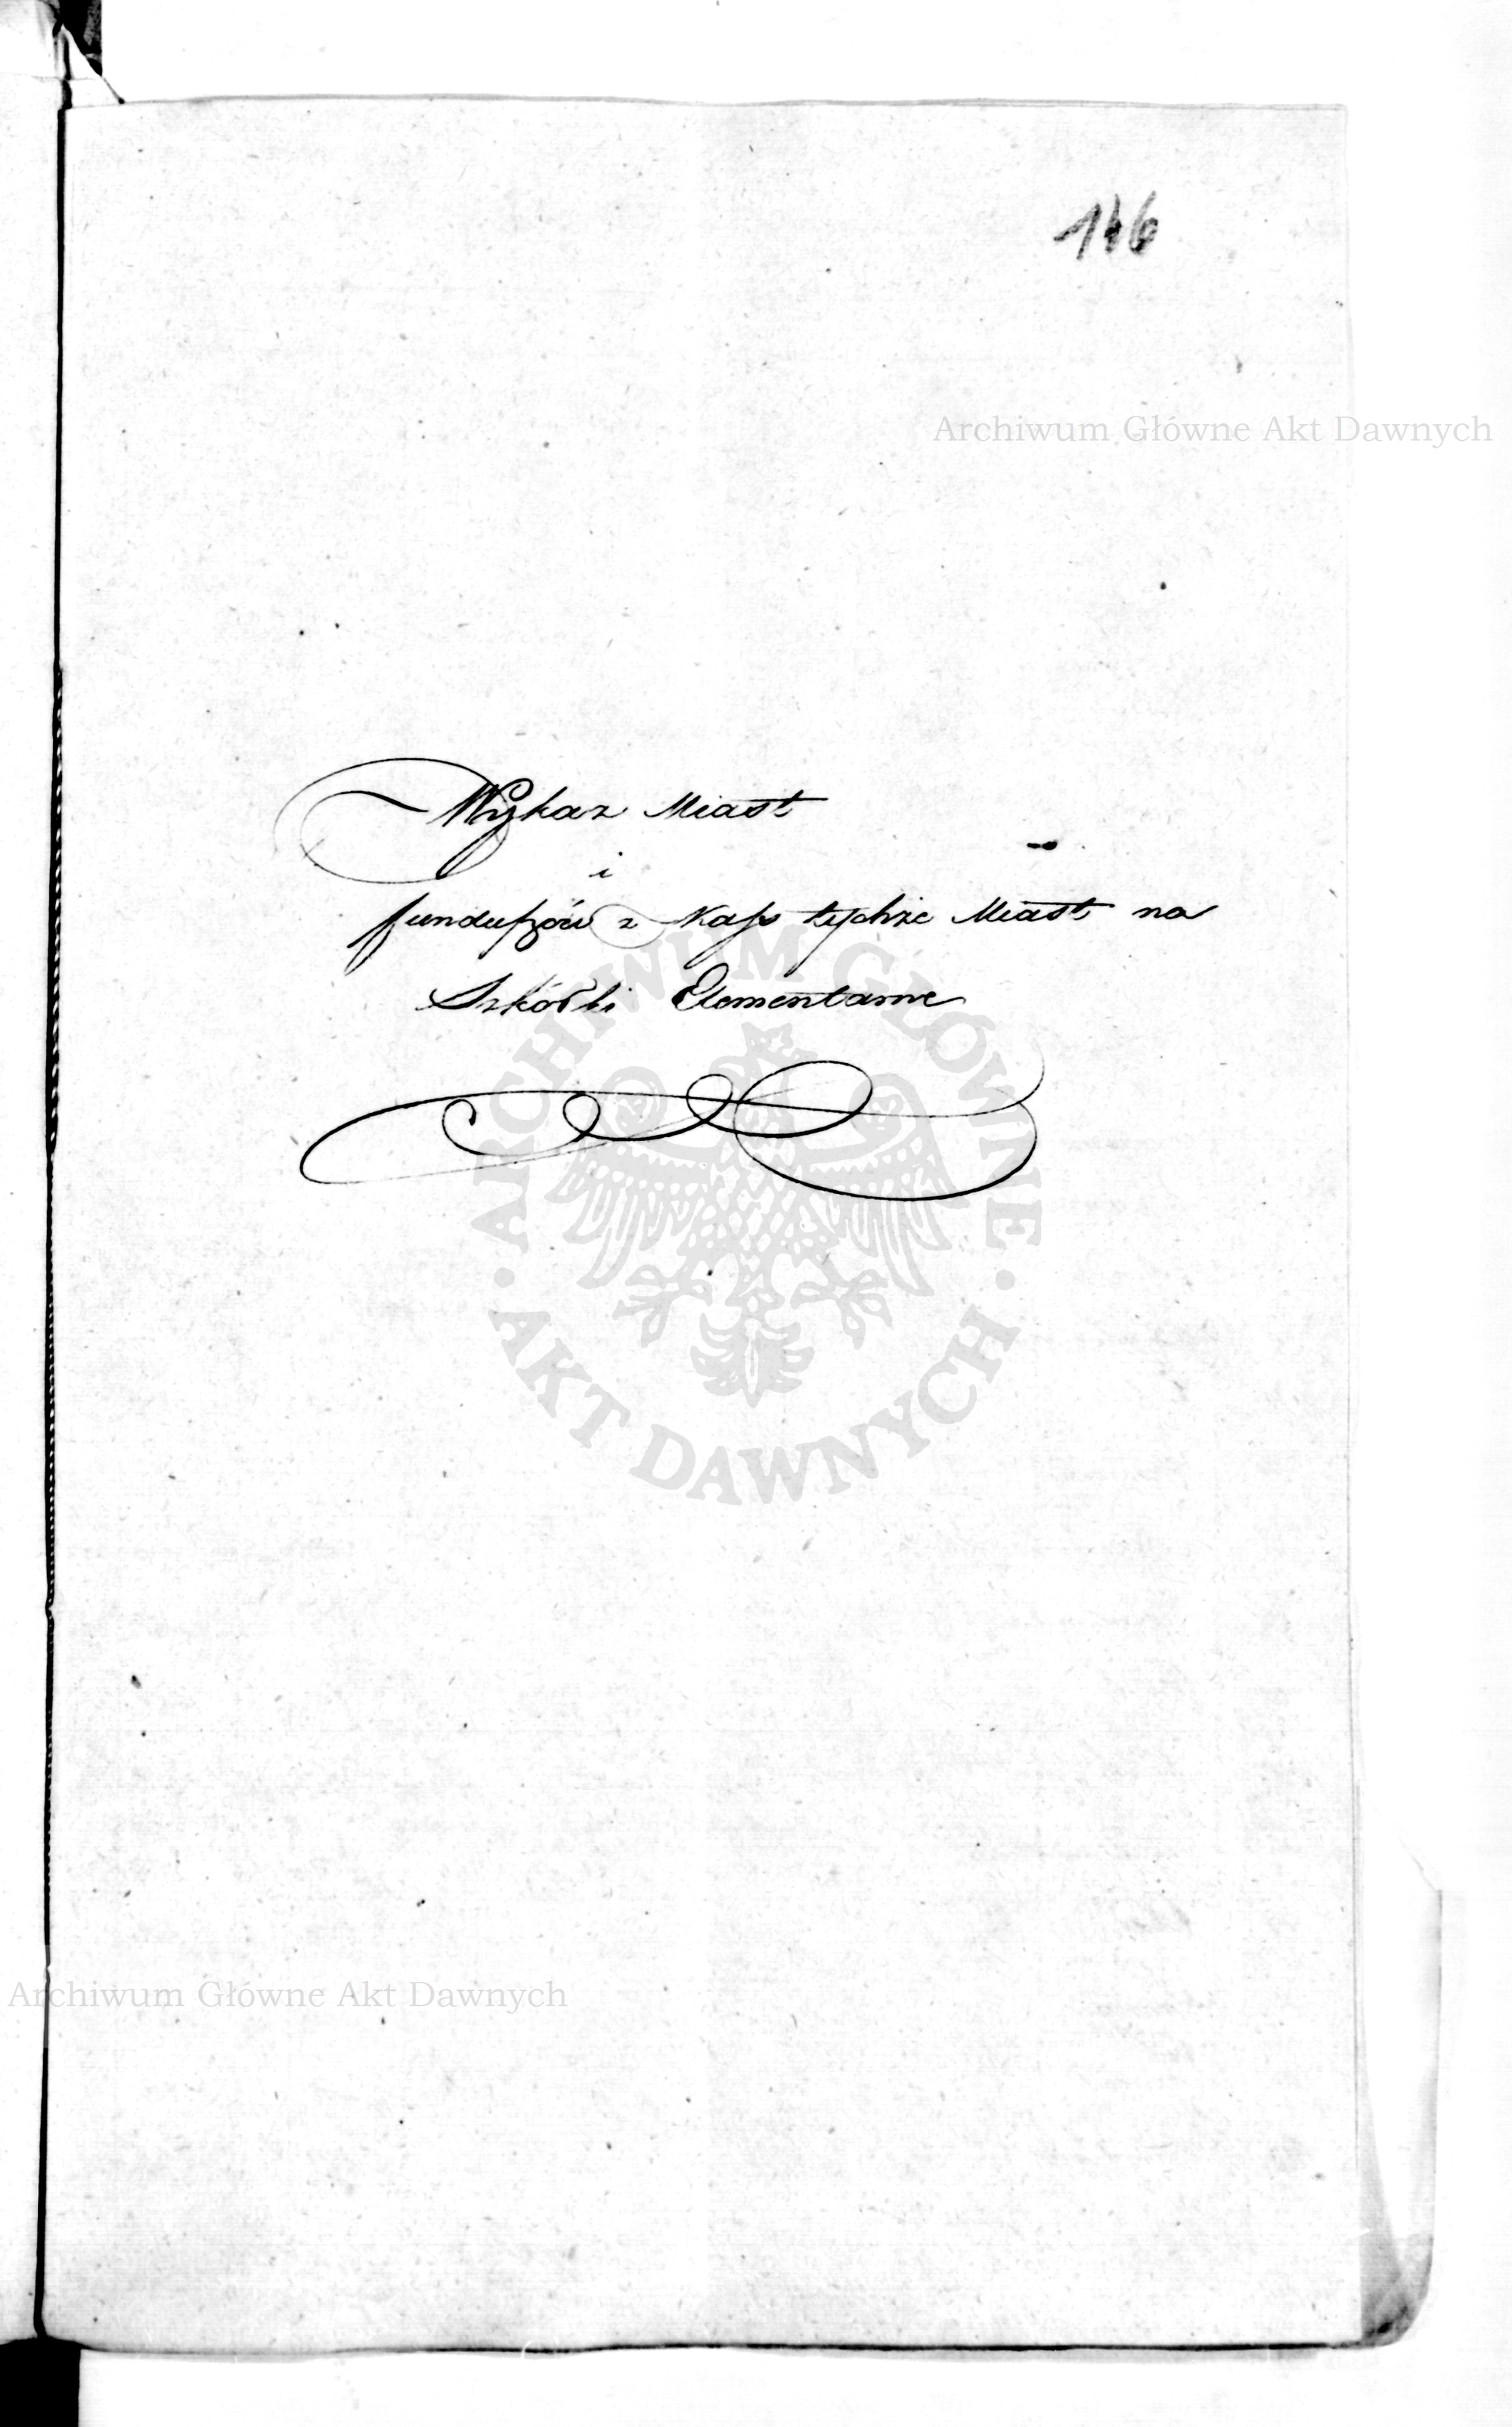 146
Archiwum Główne Akt Dawnych
Wykaz Miast
i
funduſzów z Kaſs tychże Miast na
Szkółki Elementarne
ARCHIWUM GŁÓWNE
AKT DAWNYCH
Archiwum Główne Akt Dawnych